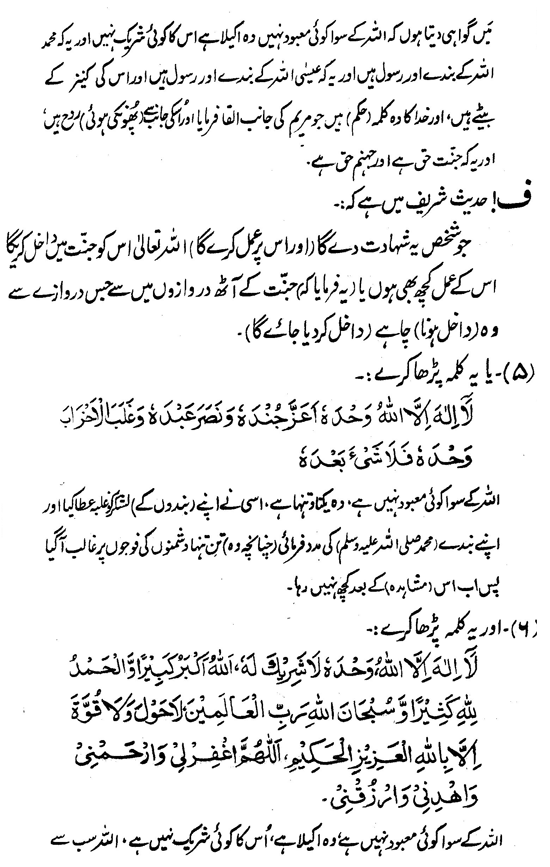 میں گواہی دیتا ہوں کہ اللہ کے سوا کوئی معبود نہیں وہ اکیلا ہے اس کا کوئی شریک نہیں اور یہ کہ محمد
اللہ کے بندے اور رسول ہیں اور یہ کہ عیسیٰ اللہ کے بندے اور رسول ہیں اور اس کی کنیز کے
بیٹے ہیں، اور خدا کا وہ کلمہ (حکم) ہیں جو مریم کی جانب القا فرمایا اور اسکی جانب سے (پھونکی ہوئی) روح ہیں
اور یہ کہ جنت حق ہے اور جہنم حق ہے۔
ف! حدیث شریف میں ہے کہ:۔
جو شخص یہ شہادت دے گا (اور اس پر عمل کرے گا) اللہ تعالیٰ اس کو جنت میں داخل کریگا
اس کے عمل کچھ بھی ہوں یا (یہ فرمایا کہ) جنّت کے آٹھ دروازوں میں سے جس دروازے سے
وہ (داخل ہونا) چاہے (داخل کر دیا جائے گا)۔
(۵)۔ یا یہ کلمہ پڑھا کرے:۔
لَا اِلٰهَ اِلَّا اللهُ وَحْدَهٗ اَعَزَّ جُنْدَهٗ وَنَصَرَ عَبْدَهٗ وَغَلَبَ الْاَحْزَابَ
وَحْدَهٗ فَلَا شَیْءَ بَعْدَهٗ
اللہ کے سوا کوئی معبود نہیں ہے، وہ یکتا و تنہا ہے، اسی نے اپنے (بندوں کے) لشکر کو غلبہ عطا کیا اور
اپنے بندے (محمد صلی اللہ علیہ وسلم) کی مدد فرمائی (چنانچہ وہ) تن تنہا دشمنوں کی فوجوں پر غالب آگیا
پس اب اس (مشاہدہ) کے بعد کچھ نہیں رہا۔
(۶)۔ اور یہ کلمہ پڑھا کرے:۔
لَا اِلٰهَ اِلَّا اللهُ وَحْدَهٗ لَا شَرِيْكَ لَهٗ، اَللهُ اَكْبَرُ كَبِيْرًا وَّالْحَمْدُ
لِلّٰهِ كَثِيْرًا وَّسُبْحَانَ اللهِ رَبِّ الْعَالَمِيْنَ لَاحَوْلَ وَلَا قُوَّةَ
اِلَّا بِاللهِ الْعَزِيْزِ الْحَكِيْمِ، اَللّٰهُمَّ اغْفِرْلِيْ وَارْحَمْنِيْ
وَاهْدِنِيْ وَارْزُقْنِيْ۔
اللہ کے سوا کوئی معبود نہیں ہے، وہ اکیلا ہے، اُس کا کوئی شریک نہیں ہے، اللہ سب سے